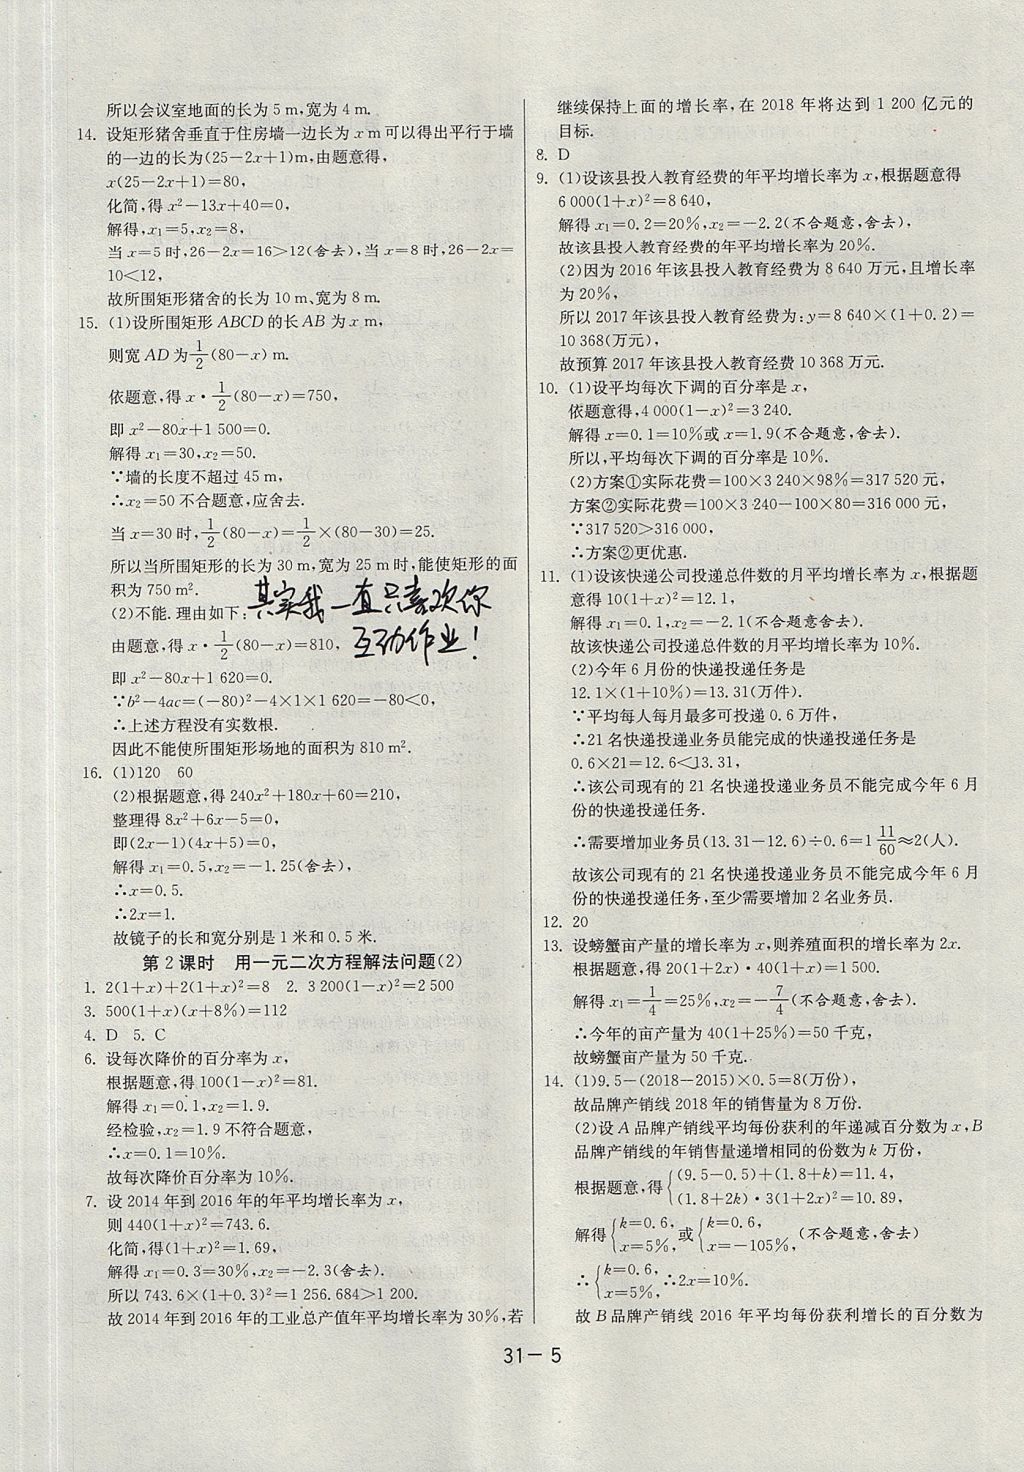 所以会议室地面的长为 5 m,宽为 4 m.
14. 设矩形猪舍垂直于住房墙一边长为 x m 可以得出平行于墙
的一边的长为(25-2x+1)m,由题意得,
x(25-2x+1)=80,
化简,得 x²-13x+40=0,
解得,x₁=5,x₂=8,
当 x=5 时,26-2x=16>12(舍去),当 x=8 时,26-2x=
10<12,
故所围矩形猪舍的长为 10 m、宽为 8 m.
15. (1)设所围矩形 ABCD 的长 AB 为 x m,
则宽 AD 为 1/2(80-x) m.
依题意,得 x·1/2(80-x)=750,
即 x²-80x+1 500=0.
解得 x₁=30,x₂=50.
∵墙的长度不超过 45 m,
∴x₂=50 不合题意,应舍去.
当 x=30 时,1/2(80-x)=1/2×(80-30)=25.
所以当所围矩形的长为 30 m,宽为 25 m 时,能使矩形的面
积为 750 m².
(2)不能.理由如下:
其实我一直只喜欢你
互动作业!
由题意,得 x·1/2(80-x)=810,
即 x²-80x+1 620=0.
∵b²-4ac=(-80)²-4×1×1 620=-80<0,
∴上述方程没有实数根.
因此不能使所围矩形场地的面积为 810 m².
16. (1)120 60
(2)根据题意,得 240x²+180x+60=210,
整理得 8x²+6x-5=0,
即(2x-1)(4x+5)=0,
解得 x₁=0.5,x₂=-1.25(舍去),
∴x=0.5.
∴2x=1.
故镜子的长和宽分别是 1 米和 0.5 米.
第 2 课时 用一元二次方程解法问题(2)
1. 2(1+x)+2(1+x)²=8 2. 3 200(1-x)²=2 500
3. 500(1+x)(x+8%)=112
4. D 5. C
6. 设每次降价的百分率为 x,
根据题意,得 100(1-x)²=81.
解得 x₁=0.1,x₂=1.9.
经检验,x₂=1.9 不符合题意,
∴x=0.1=10%.
故每次降价百分率为 10%.
7. 设 2014 年到 2016 年的年平均增长率为 x,
则 440(1+x)²=743.6.
化简,得(1+x)²=1.69,
解得 x₁=0.3=30%,x₂=-2.3(舍去).
所以 743.6×(1+0.3)²=1 256.684>1 200.
故 2014 年到 2016 年的工业总产值年平均增长率为 30%,若
继续保持上面的增长率,在 2018 年将达到 1 200 亿元的
目标.
8. D
9. (1)设该县投入教育经费的年平均增长率为 x,根据题意得
6 000(1+x)²=8 640,
解得 x₁=0.2=20%,x₂=-2.2(不合题意,舍去).
故该县投入教育经费的年平均增长率为 20%.
(2)因为 2016 年该县投入教育经费为 8 640 万元,且增长率
为 20%,
所以 2017 年该县投入教育经费为:y=8 640×(1+0.2)=
10 368(万元),
故预算 2017 年该县投入教育经费 10 368 万元.
10. (1)设平均每次下调的百分率是 x,
依题意得,4 000(1-x)²=3 240.
解得 x=0.1=10%或 x=1.9(不合题意,舍去).
所以,平均每次下调的百分率是 10%.
(2)方案①实际花费=100×3 240×98%=317 520 元,
方案②实际花费=100×3 240-100×80=316 000 元,
∵317 520>316 000,
∴方案②更优惠.
11. (1)设该快递公司投递总件数的月平均增长率为 x,根据题
意得 10(1+x)²=12.1,
解得 x₁=0.1,x₂=-2.1(不合题意舍去).
故该快递公司投递总件数的月平均增长率为 10%.
(2)今年 6 月份的快递投递任务是
12.1×(1+10%)=13.31(万件).
∵平均每人每月最多可投递 0.6 万件,
∴21 名快递投递业务员能完成的快递投递任务是
0.6×21=12.6<13.31,
∴该公司现有的 21 名快递投递业务员不能完成今年 6 月
份的快递投递任务.
∴需要增加业务员(13.31-12.6)÷0.6=1 11/60≈2(人).
故该公司现有的 21 名快递投递业务员不能完成今年 6 月
份的快递投递任务,至少需要增加 2 名业务员.
12. 20
13. 设螃蟹亩产量的增长率为 x,则养殖面积的增长率为 2x.
由题意,得 10(1+2x)·40(1+x)=1 500.
解得 x₁=1/4=25%,x₂=-7/4(不合题意,舍去).
∴今年的亩产量为 40(1+25%)=50 千克,
故螃蟹亩产量为 50 千克.
14. (1)9.5-(2018-2015)×0.5=8(万份),
故品牌产销线 2018 年的销售量为 8 万份.
(2)设 A 品牌产销线平均每份获利的年递减百分数为 x,B
品牌产销线的年销售量递增相同的份数为 k 万份,
根据题意,得{(9.5-0.5)+(1.8+k)=11.4,
(1.8+2k)·3(1+2x)²=10.89,
解得{k=0.6, x=5%,或{k=0.6, x=-105%,(不合题意,舍去)
∴{k=0.6, x=5%,∴2x=10%.
故 B 品牌产销线 2016 年平均每份获利增长的百分数为
31-5